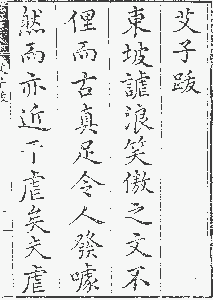 艾子跋
東坡謔浪笑傲之文不
俚而古真足令人發噱
然而亦近于虐矣夫虐